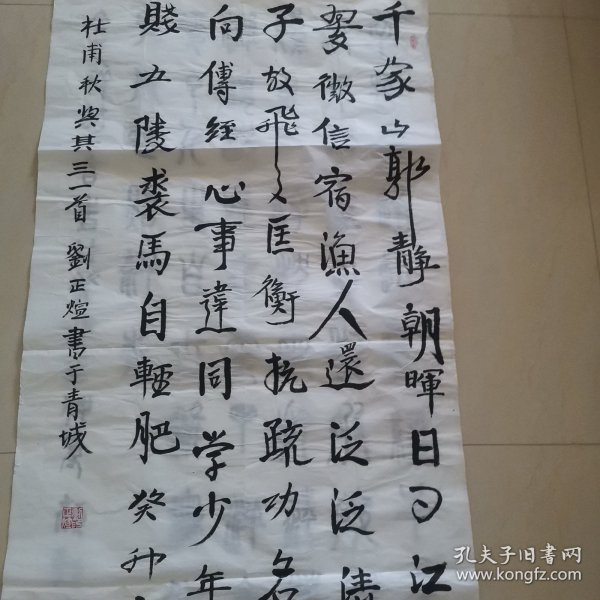 千家山郭靜朝暉日日江
翠微信宿漁人還泛泛清
子故飛々匡衡抗疏功名
向傳經心事違同学少年
賤五陵裘馬自輕肥癸卯
杜甫秋興其三一首 劉正煊書于青城
孔夫子旧书网
www.kongfz.com